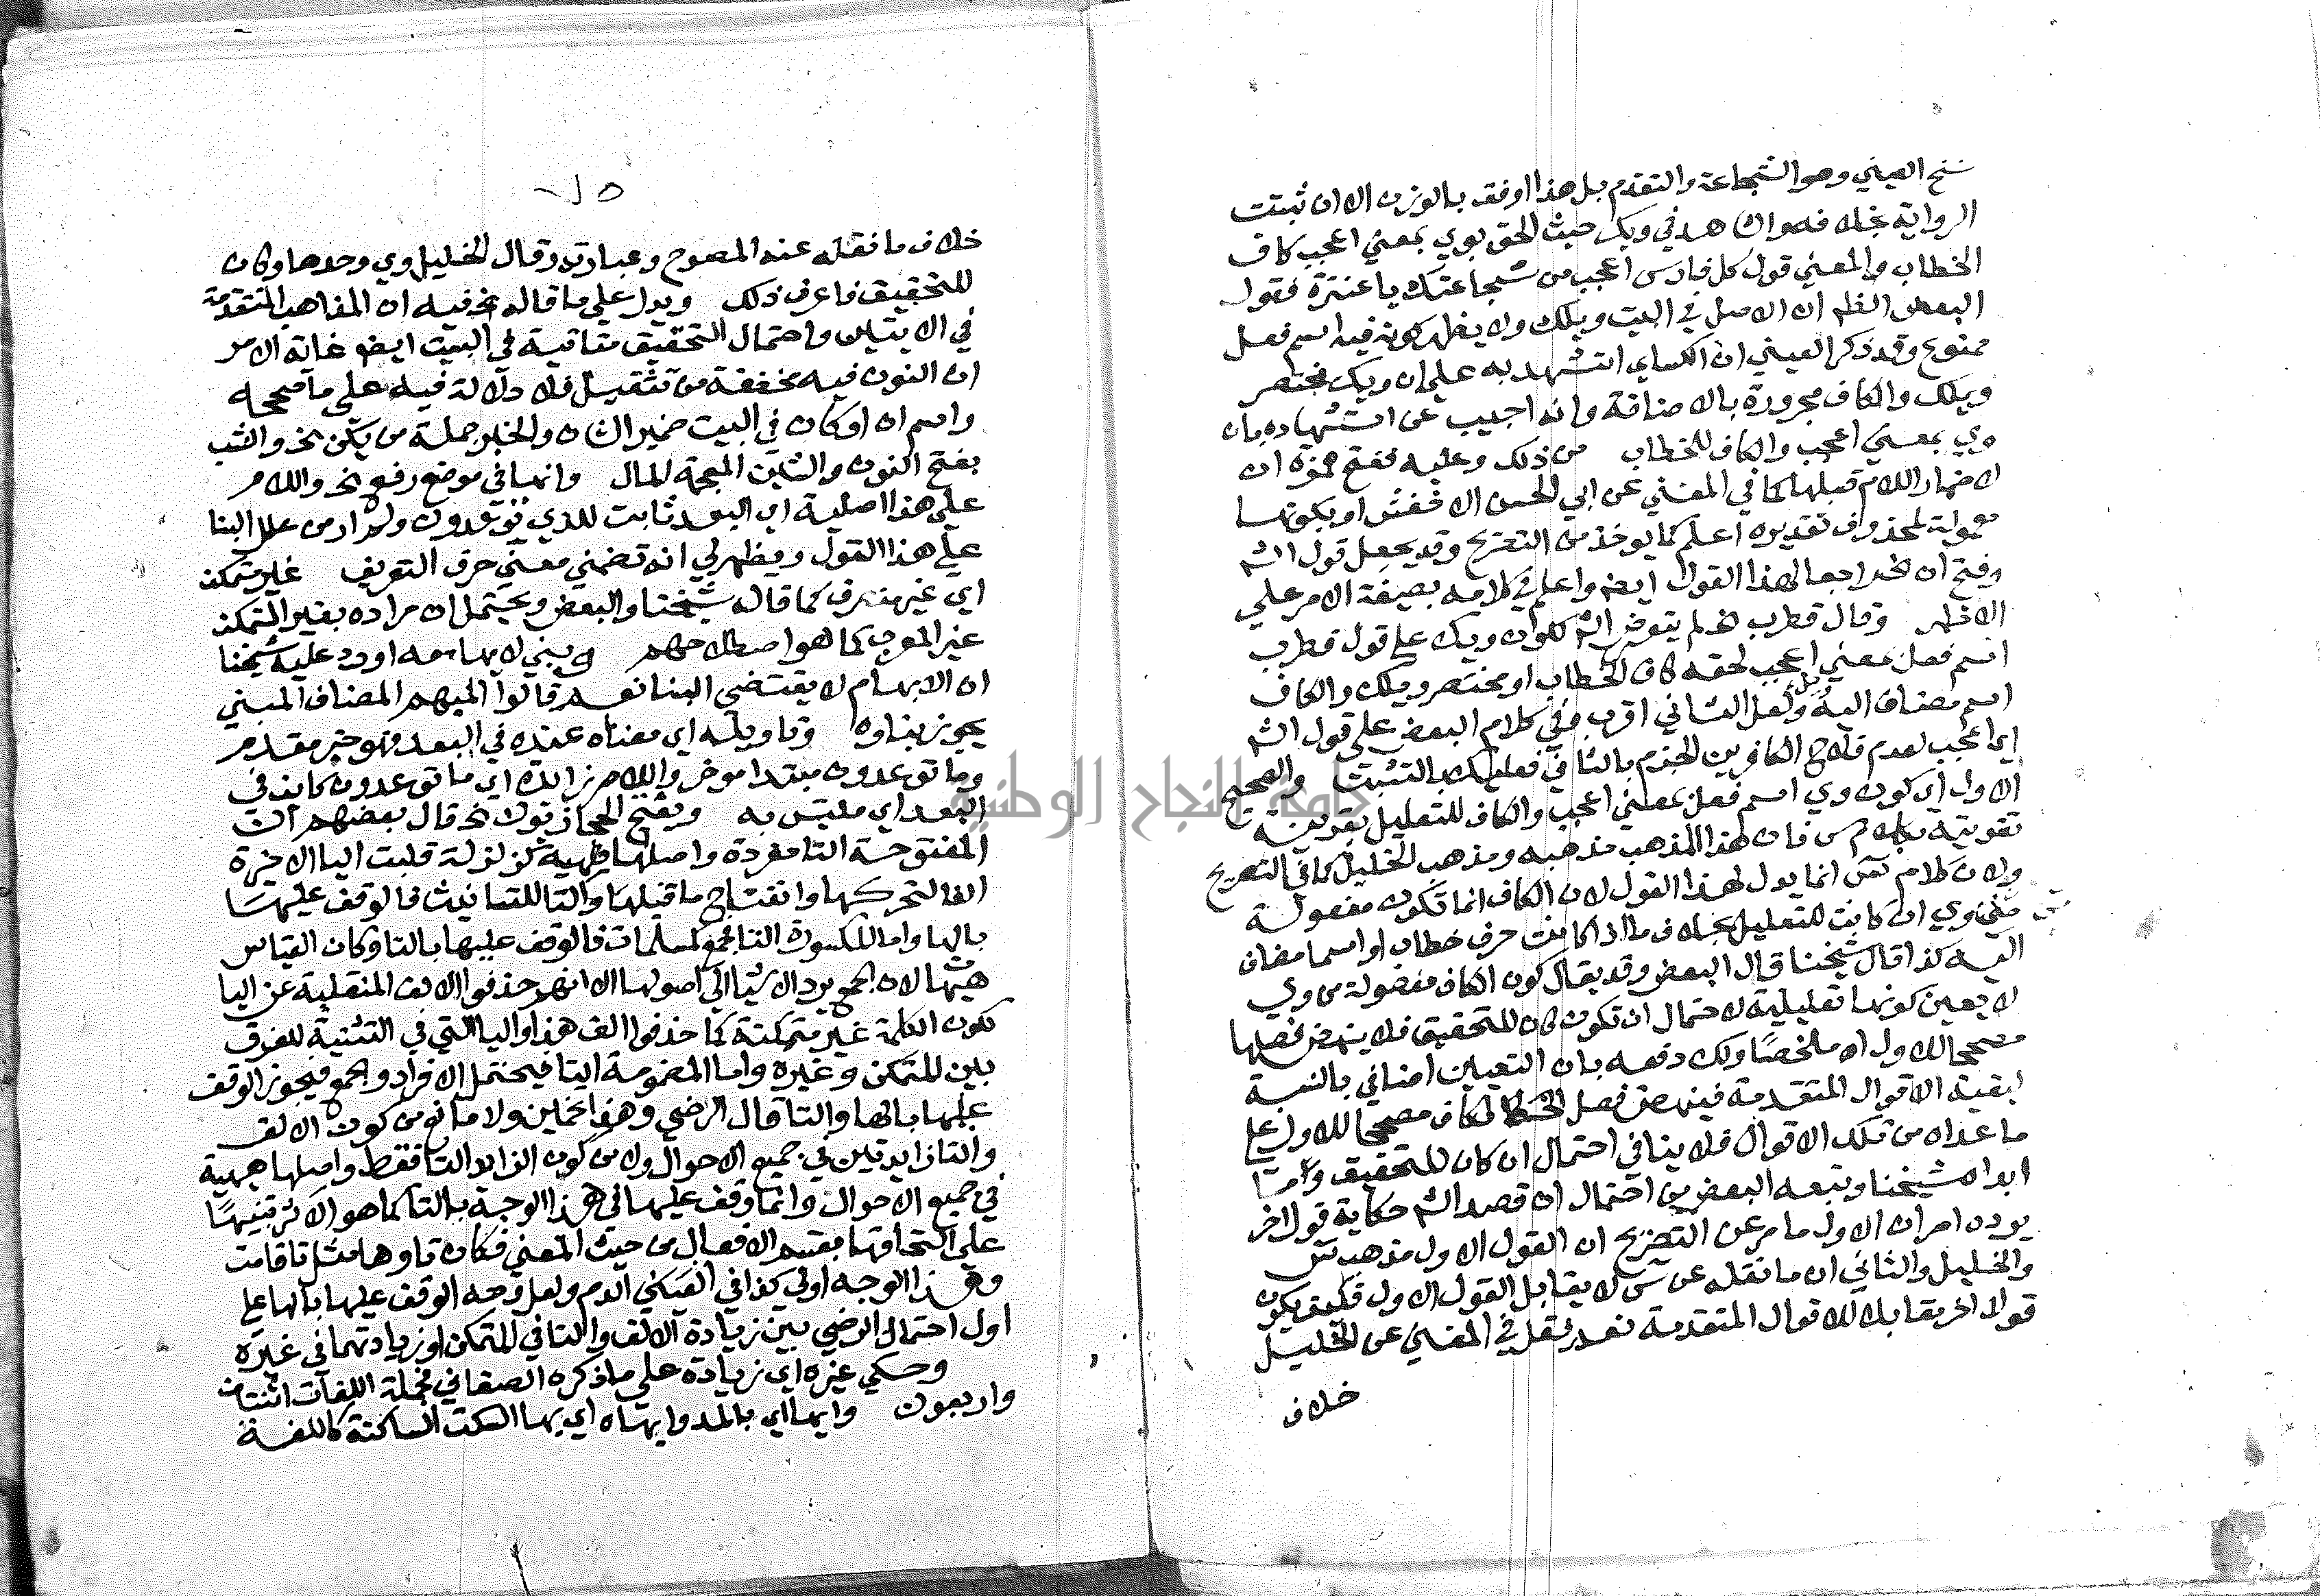 نسخ العيني وهو الشجاعة والتقدم بل هذا اوفق بالوزن الا ان ثبتت
الرواية بخلافه وان اهـ في ويك حيث الحق بوي بمعني اعجب كاف
الخطاب والمعني قول كل فارس اعجب من شجاعتك يا عنترة فقول
البعض الظم ان الاصل في البيت ويلك ولا يظهر كونه فيه اسم فعل
ممنوع وقد ذكر العيني ان الكساي استشهد به علي ان ويك مختصر
ويلك والكاف مجرورة بالاضافة وانه اجيب عن استشهاده بان
وي بمعني اعجب والكاف للخطاب من ذلك وعليه ففتح همزة ان
لاضمار اللام قبلها كما في المغني عن ابي الحسن الاخفش او بكونها
معمولة لمحذوف تقديره اعلم كما يوخذ من التصريح وقد يجعل قول الشـ
وفتح ان الخ راجعا لهذا القول ايضا واعلم في كلامه بصيغة الامر علي
الاظهر وقال قطرب الخ لم يتعرض الشـ لكون ويك علي قول قطرب
اسم فعل بمعني اعجب لحقه كاف الخطاب او مختصر ويلك والكاف
اسم مضاف اليه ولعل الثاني اقرب وفي كلام البعض علي قول الشـ
اي اعجب لعدم فلاح الكافرين الجزم بالثاني فعليك بالتثبت والصحيح
الاول اي كون وي اسم فعل بمعني اعجب والكاف للتعليل بقرينة
تقويته بكلام س فان هذا المذهب مذهبه ومذهب الخليل كما في التصريح
ولان كلام س انما يدل لهذا القول لان الكاف انما تكون مفصولة
من وي ان كانت للتعليل بخلاف ما اذا كانت حرف خطاب او اسما مضاف
اليه كذا قال شيخنا قال البعض وقد يقال كون الكاف مفصولة من وي
لا يعين كونها تعليلية لاحتمال ان تكون كان للتحقيق فلا ينهض فصلها
مصححا للاول اهـ ملخصا ولك دفعه بان التعيين اضافي بالنسبة
لبقية الاقوال المتقدمة فينهض فصل الكاف مصححا للاول علي
ما عداه من تلك الاقوال فلا ينافي احتمال ان كان للتحقيق واما
ابداه شيخنا وتبعه البعض من احتمال ان قصد الشـ حكاية قول اخر
يرده امران الاول ما مر عن التصريح ان القول الاول مذهب س
والخليل والثاني ان ما نقله عن س لا يقابل القول الاول فكيف يكون
قولا اخر مقابلا للاقوال المتقدمة نعم نقل في المغني عن الخليل
خلاف
خلاف ما نقله عنه المصرح وعبارته وقال الخليل وي وحدها وكان
للتحقيق فاعرف ذلك ويدل علي ما قاله الخ فيه ان المذاهب المتقدمة
في الايتين واحتمال التحقيق متاتية في البيت ايضا غاية الامر
ان النون فيه مخففة من تثقيل فلا دلالة فيه علي ما صححه
واسم ان او كان في البيت ضمير الشان والخبر جملة من يكن الخ والنشب
بفتح النون والشين المعجمة المال وانها في موضع رفع الخ واللام
علي هذا اصلية اي البعد ثابت للذي توعدون ولم ار من علل البنا
علي هذا القول ويظهر لي انه تضمني معني حرف التعريف غير متمكن
اي غير منصرف كما قاله شيخنا والبعض ويحتمل ان مراده بغير المتمكن
غير المعرب كما هو اصطلاحهم وبني لابهامه اورد عليه شيخنا
ان الابهام لا يقتضي البنا نعم قالوا المبهم المضاف لمبني
يجوز بناوه وتاويله اي معناه عنده في البعد فهو خبر مقدم
وما توعدون مبتدا موخر واللام زائدة اي ما توعدون كائن في
البعد اي ملتبس به ويفتح الحجازيون الخ قال بعضهم ان
المفتوحة التا مفردة واصلها هيهية كزلزلة قلبت اليا الاخيرة
الفا لتحركها وانفتاح ما قبلها والتا للتانيث فالوقف عليها
بالها واما المكسورة التا فجمع كمسلمات فالوقف عليها بالتا وكان القياس
هيهيات لان الجمع يرد الاشيا الي اصولها الا انهم حذفوا الالف المنقلبة عن اليا
لكون الكلمة غير متمكنة كما حذفوا الف هذا واليا التي في التثنية للفرق
بين المتمكن وغيره واما المضمومة التا فيحتمل الافراد والجمع فيجوز الوقف
عليها بالها والتا قال الرضي وهذا تخمين ولا مانع من كون الالف
والتا زايدتين في جميع الاحوال ولا من كون الزايد التا فقط واصلها هيهية
في جميع الاحوال وانما وقف عليها في هذا الوجه بالتا كما هو الاكثر تنبيها
علي التحاقها بقسم الافعال من حيث المعني فكان تاوها مثل تا قامت
وهذا الوجه اولي كذا في العيني الدم ولعل وجه الوقف عليها بالها علي
اول احتمالي الرضي بين زيادة الالف والتا في المتمكن وزيادتهما في غيره
وحكي غيره اي زيادة علي ما ذكره الصغاني فجملة اللغات اثنتان
واربعون وايهااي بالمد وايهاه اي بها السكت الساكنة كاللغة